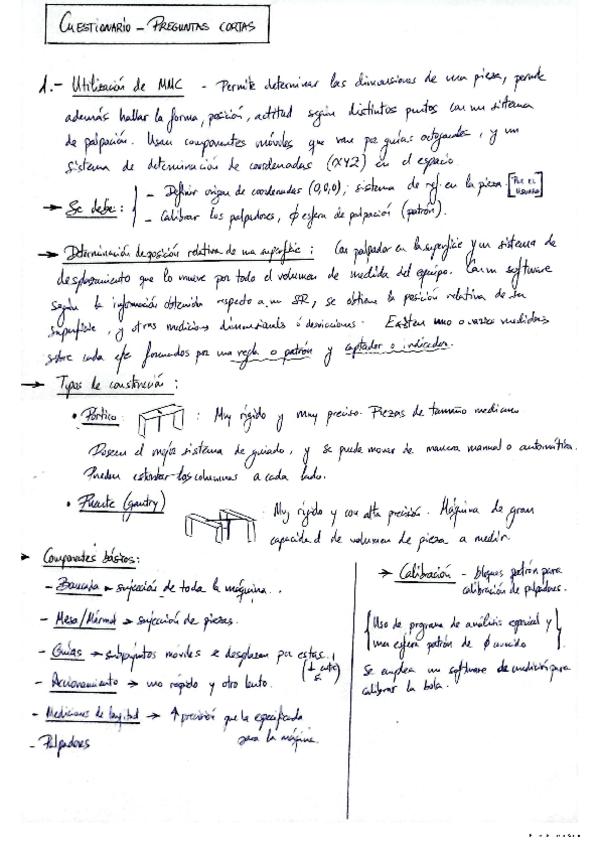 CUESTIONARIO - PREGUNTAS CORTAS
1.- Utilización de MMC - Permite determinar las dimensiones de una pieza, permite
además hallar la forma, posición, actitud según distintos puntos con un sistema
de palpación. Usan componentes móviles que van por guías octogonales, y un
sistema de determinación de coordenadas (XYZ) en el espacio
→ Se debe: - Definir origen de coordenadas (0,0,0); sistema de ref. en la pieza. [POR EL USUARIO]
- Calibrar los palpadores, ϕ esfera de palpación (patrón).
→ Determinación de posición relativa de una superficie: Con palpador en la superficie y un sistema de
desplazamiento que lo mueve por todo el volumen de medida del equipo. Con un software
según la información obtenida respecto a un SR, se obtiene la posición relativa de su
superficie, y otras mediciones dimensionales ó desviaciones. Existen uno o varios medidores
sobre cada eje formados por una regla o patrón y captador o indicador.
→ Tipos de construcción:
• Pórtico: Muy rígido y muy preciso. Piezas de tamaño mediano
Poseen el mejor sistema de guiado, y se puede mover de manera manual o automática.
Pueden las columnas a cada lado.
• Puente (gantry) Muy rígido y con alta precisión. Máquina de gran
capacidad de volumen de pieza a medir.
→ Componentes básicos:
- Bancada → sujección de toda la máquina.
- Mesa/Mármol → sujección de piezas.
- Guías → subconjuntos móviles se desplazan por estas. (⊥ entre sí)
- Accionamiento → uno rápido y otro lento.
- Mediciones de longitud → ↑ precisión que la especificada
para la máquina.
- Palpadores
→ Calibración - bloques patrón para
calibración de palpadores.
{Uso de programa de análisis especial y
una esfera patrón de ϕ conocido}
Se emplea un software de medición para
calibrar la bola.